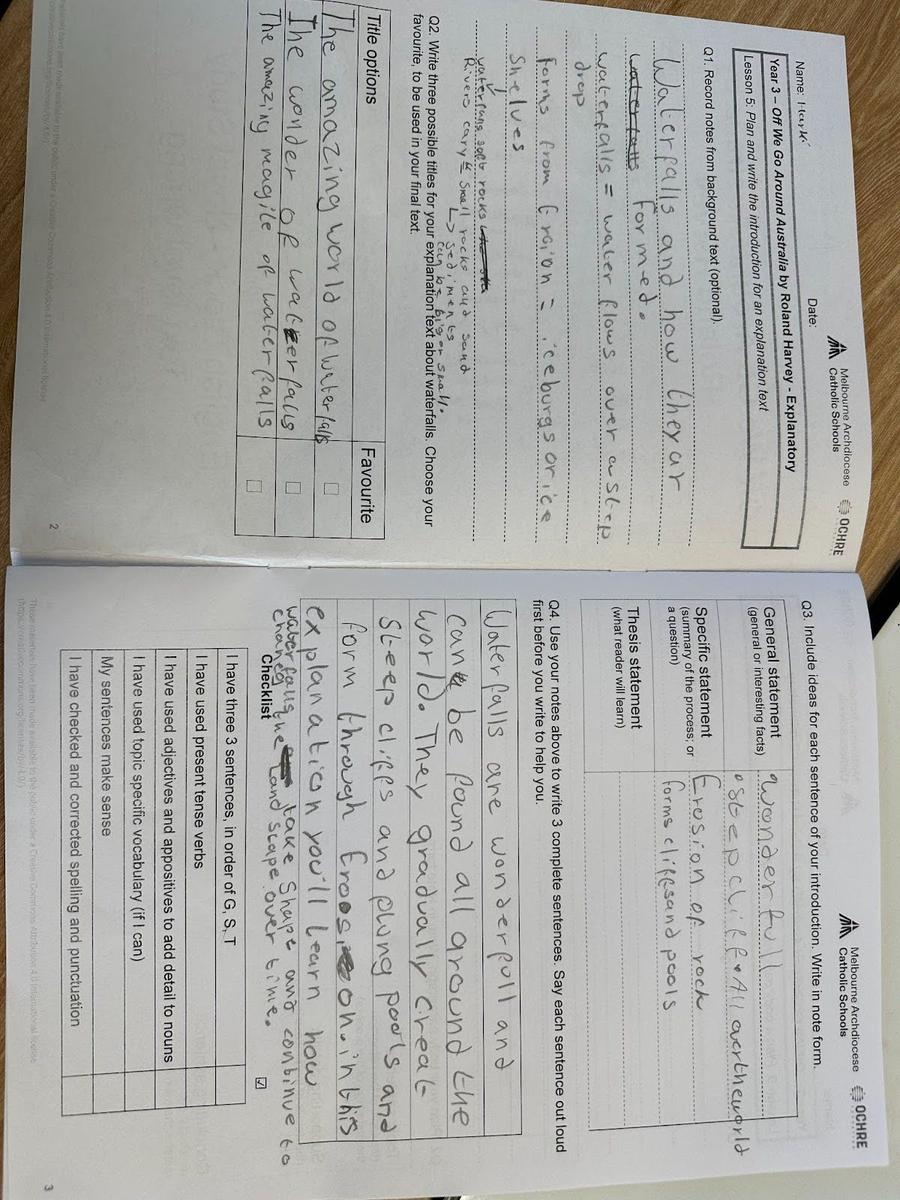 Melbourne Archdiocese
Catholic Schools
OCHRE
Name:
Date:
Year 3 – Off We Go Around Australia by Roland Harvey - Explanatory
Lesson 5: Plan and write the introduction for an explanation text
Q1. Record notes from background text (optional).
Waterfalls and how they ar
waterfalls formed.
waterfalls = water flows over a step
drop
forms from Eroion = iceburgs or ice
Shelves
waterfalls soft rocks
Rivers cary small rocks and sand
↳ sediments
can be big or small.
Q2. Write three possible titles for your explanation text about waterfalls. Choose your
favourite, to be used in your final text.
Title options
Favourite
The amazing world of waterfalls
The wonder of waterfalls
The amazing magice of waterfalls
2
Melbourne Archdiocese
Catholic Schools
OCHRE
Q3. Include ideas for each sentence of your introduction. Write in note form.
General statement
(general or interesting facts)
• wonderfull
• Step cliff • All over the world
Specific statement
(summary of the process; or
a question)
Erosion of rock
forms cliffs and pools
Thesis statement
(what reader will learn)
Q4. Use your notes above to write 3 complete sentences. Say each sentence out loud
first before you write to help you.
Waterfalls are wonderfull and
can be found all ground the
world. They gradually creat
steep cliffs and plung pools and
form through Erosion. in this
explanation you'll learn how
waterfalls take Shape and continue to
change the land scape over time.
Checklist
☑
I have three 3 sentences, in order of G, S, T
I have used present tense verbs
I have used adjectives and appositives to add detail to nouns
I have used topic specific vocabulary (if I can)
My sentences make sense
I have checked and corrected spelling and punctuation
3